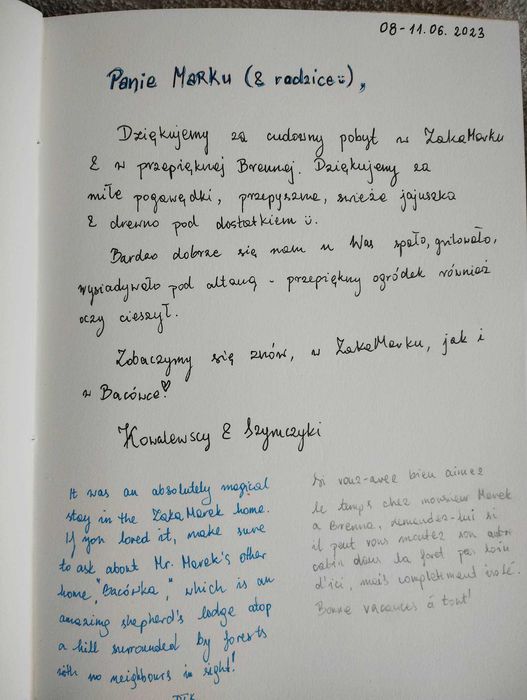 08-11.06.2023
Panie Marku (& rodzice☺),
Dziękujemy za cudowny pobyt w ZakaMarku
& w przepięknej Brennej. Dziękujemy za
miłe pogawędki, przepyszne, świeże jajuszka
& drewno pod dostatkiem ☺.
Bardzo dobrze się nam u Was spało, grilowało,
wysiadywało pod altaną - przepiękny ogródek również
oczy cieszył.
Zobaczymy się znów, w ZakaMarku, jak i
w Bacówce!♡
Kowalewscy & Szymczyki
It was an absolutely magical
stay in the ZakaMarek home.
If you loved it, make sure
to ask about Mr. Marek's other
home, "Bacówka," which is an
amazing shepherd's lodge atop
a hill surrounded by forests
with no neighbours in sight!
Si vous-avez bien aimez
le temps chez monsieur Marek
a Brenna, demandez-lui si
il peut vous montez son autre
cabin dans la foret pas loin
d'ici, mais completement isolé.
Bonne vacances á tout!